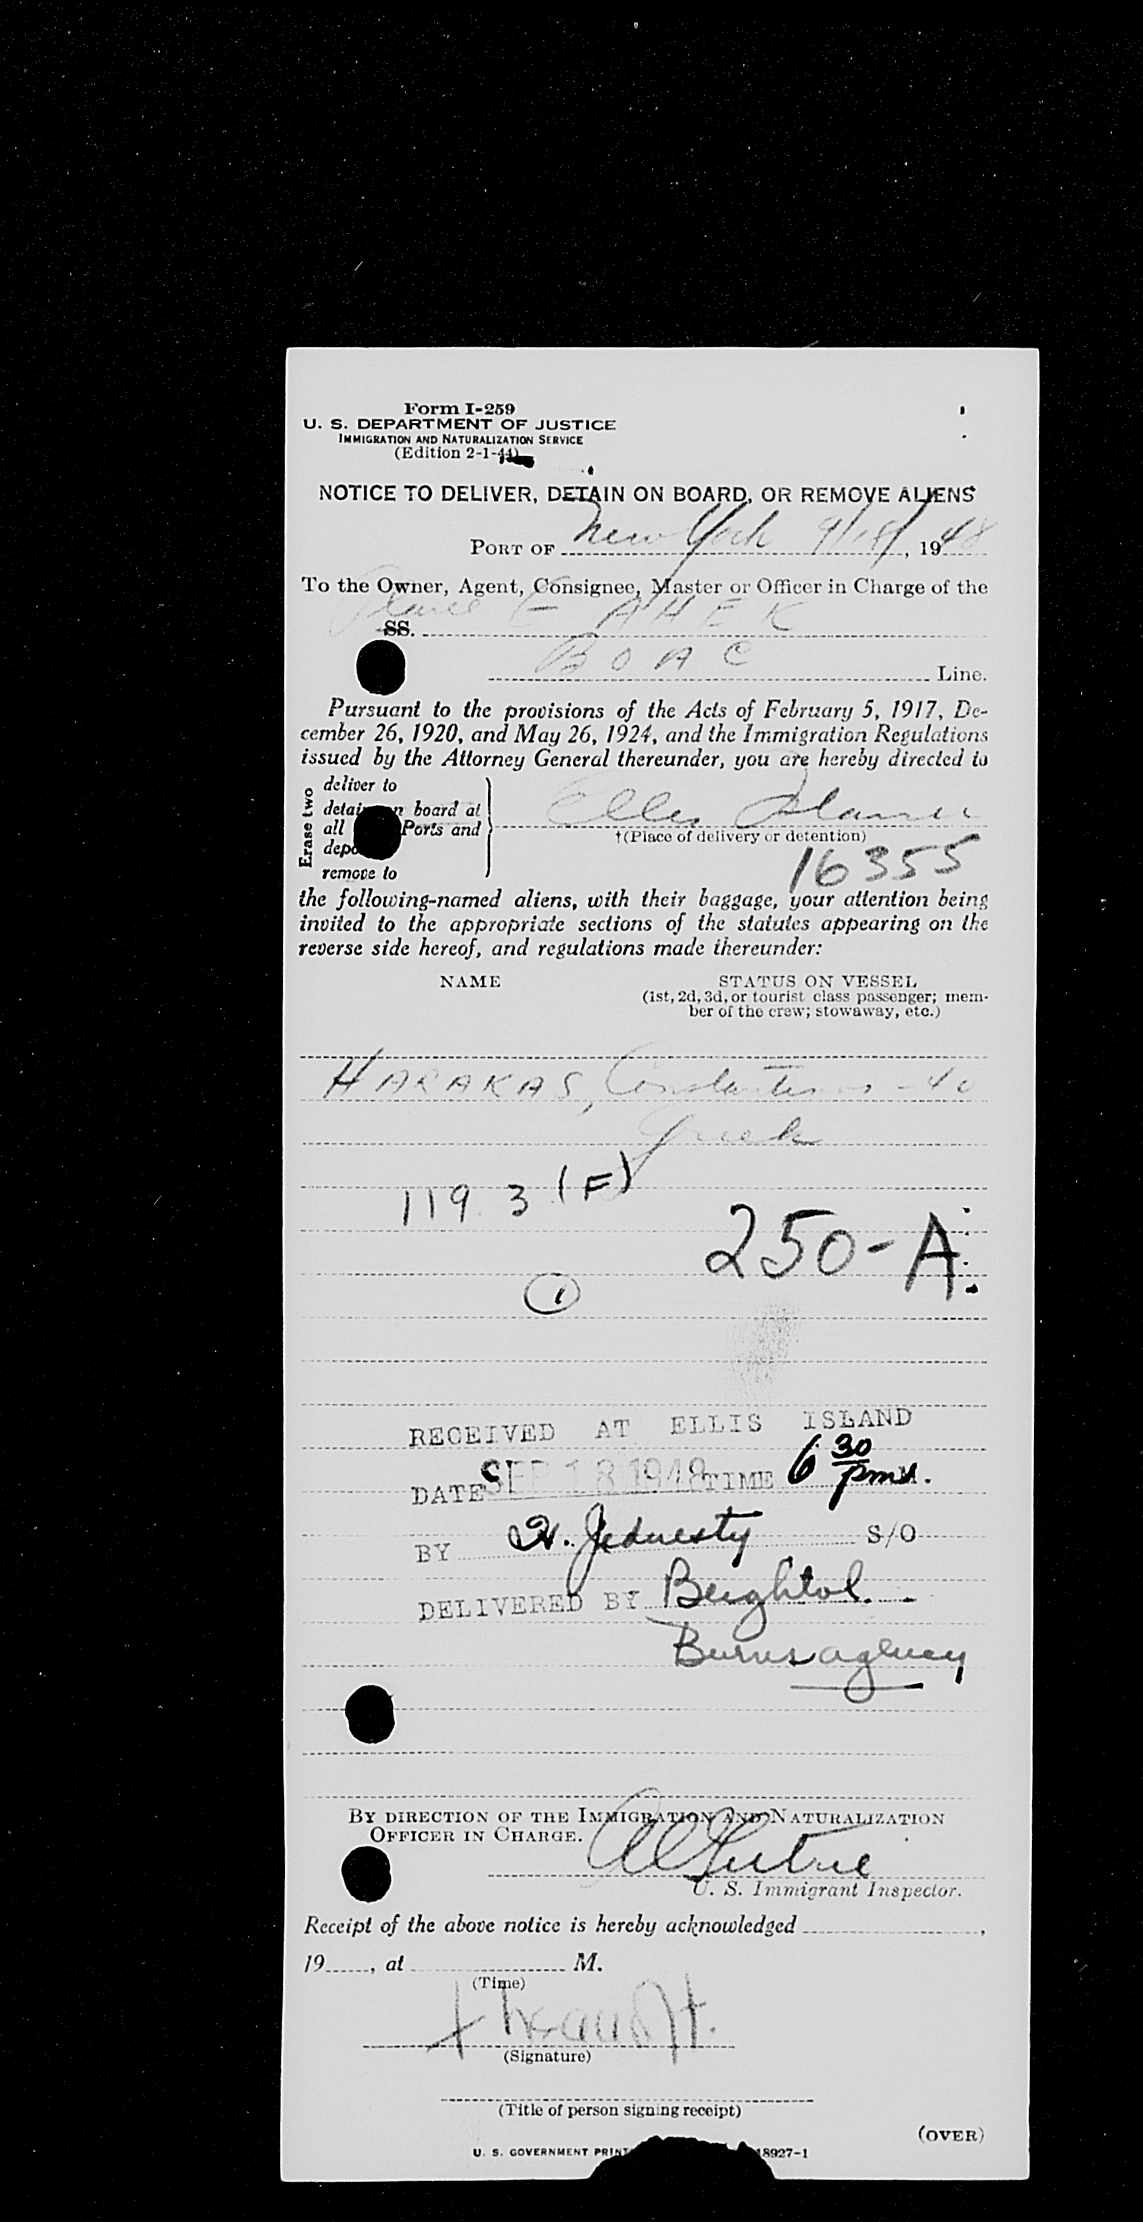 Form I-259
U. S. DEPARTMENT OF JUSTICE
IMMIGRATION AND NATURALIZATION SERVICE
(Edition 2-1-44)
NOTICE TO DELIVER, DETAIN ON BOARD, OR REMOVE ALIENS
PORT OF New York 9/18/, 1948
To the Owner, Agent, Consignee, Master or Officer in Charge of the
Plane G AHEK
SS.
BOAC Line.
Pursuant to the provisions of the Acts of February 5, 1917, De-
cember 26, 1920, and May 26, 1924, and the Immigration Regulations
issued by the Attorney General thereunder, you are hereby directed to
Erase two
deliver to
detain on board at
all Ports and
remove to
Ellis Island
†(Place of delivery or detention)
16355
the following-named aliens, with their baggage, your attention being
invited to the appropriate sections of the statutes appearing on the
reverse side hereof, and regulations made thereunder:
NAME STATUS ON VESSEL
(1st, 2d, 3d, or tourist class passenger; mem-
ber of the crew; stowaway, etc.)
HARAKAS, Constantinos - 40
Greek
119 3 (F)
250-A
1
RECEIVED AT ELLIS ISLAND
DATE SEP 18 1948 TIME 6 30 pm
BY H. S/O
DELIVERED BY Beightol
Burns agency
BY DIRECTION OF THE IMMIGRATION AND NATURALIZATION
OFFICER IN CHARGE.
U. S. Immigrant Inspector.
Receipt of the above notice is hereby acknowledged ,
19 , at M.
(Time)
(Signature)
(Title of person signing receipt)
(OVER)
U. S. GOVERNMENT 18927-1